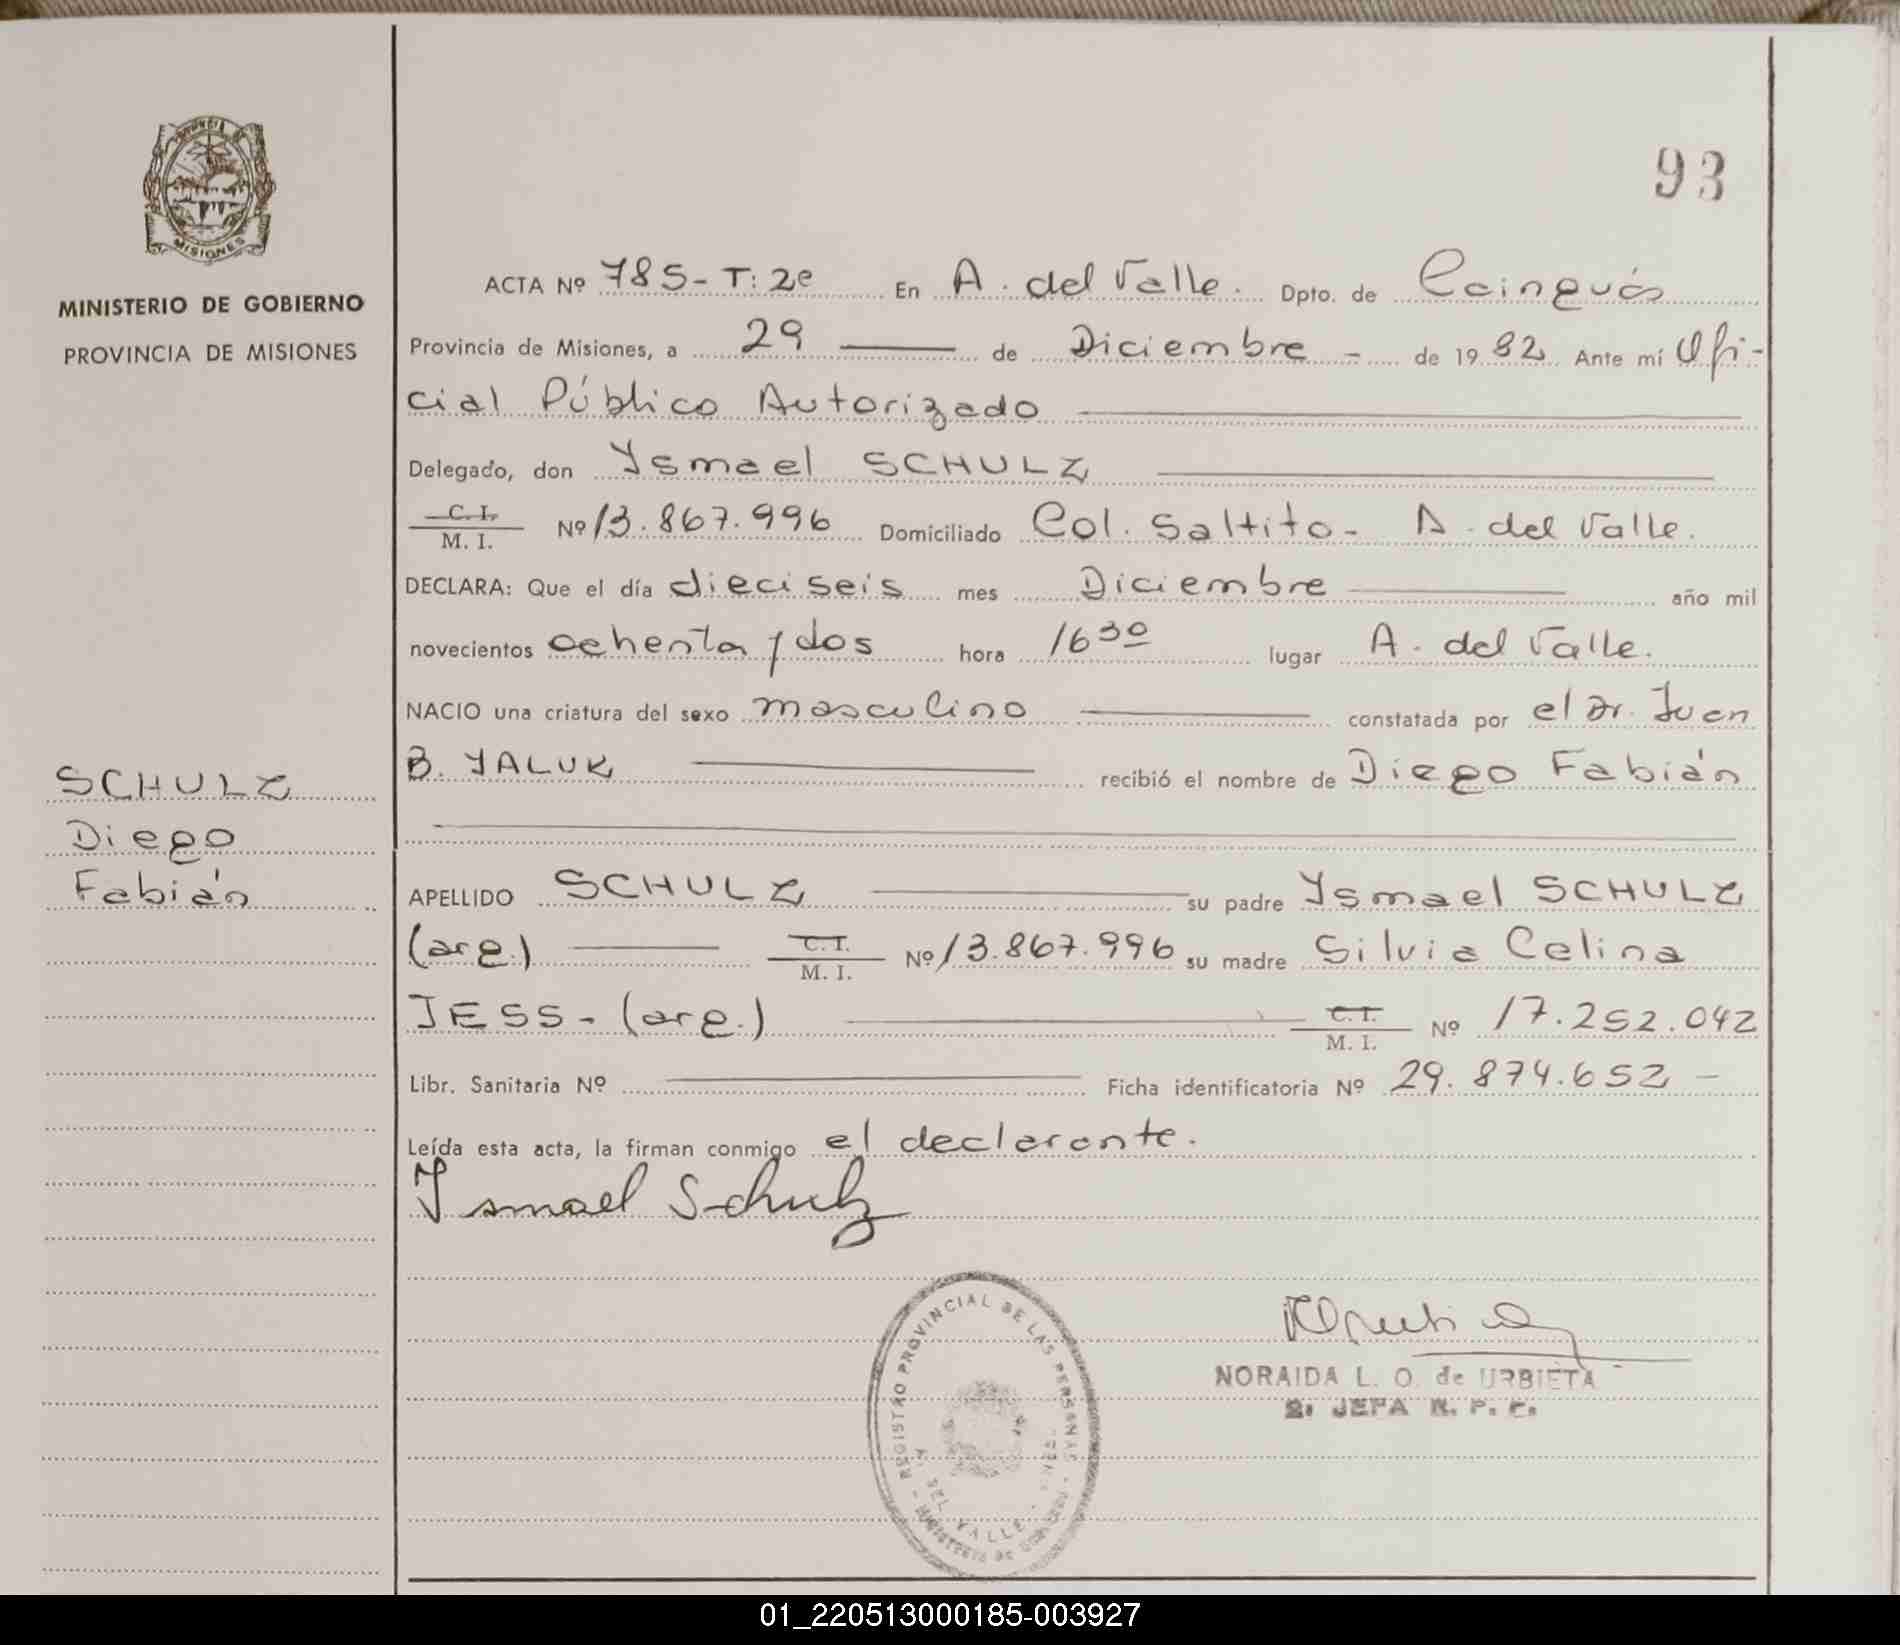 93
PROVINCIA DE
MISIONES
MINISTERIO DE GOBIERNO
PROVINCIA DE MISIONES
ACTA Nº 785 - T: 2º En A. del Valle. Dpto. de Cainguás
Provincia de Misiones, a 29 de Diciembre - de 1982 Ante mí Ofi-
cial Público Autorizado
Delegado, don Ysmael SCHULZ
C. I.
M. I. Nº 13.867.996 Domiciliado Col. Saltito - A. del Valle.
DECLARA: Que el día dieciseis mes Diciembre año mil
novecientos ochenta y dos hora 16 30 lugar A. del Valle.
NACIO una criatura del sexo masculino constatada por el Dr. Juan
B. YALUK recibió el nombre de Diego Fabián
SCHULZ
Diego
Fabián
APELLIDO SCHULZ su padre Ysmael SCHULZ
(arg.) C. I.
M. I. Nº 13.867.996 su madre Silvia Celina
JESS - (arg.) C. I.
M. I. Nº 17.252.042
Libr. Sanitaria Nº Ficha identificatoria Nº 29.874.652 -
Leída esta acta, la firman conmigo el declarante.
Ysmael Schulz
REGISTRO PROVINCIAL DE LAS PERSONAS
DEL VALLE
MINISTERIO DE GOBIERNO
NORAIDA L. O. de URBIETA
2. JEFA R. P. P.
01_220513000185-003927